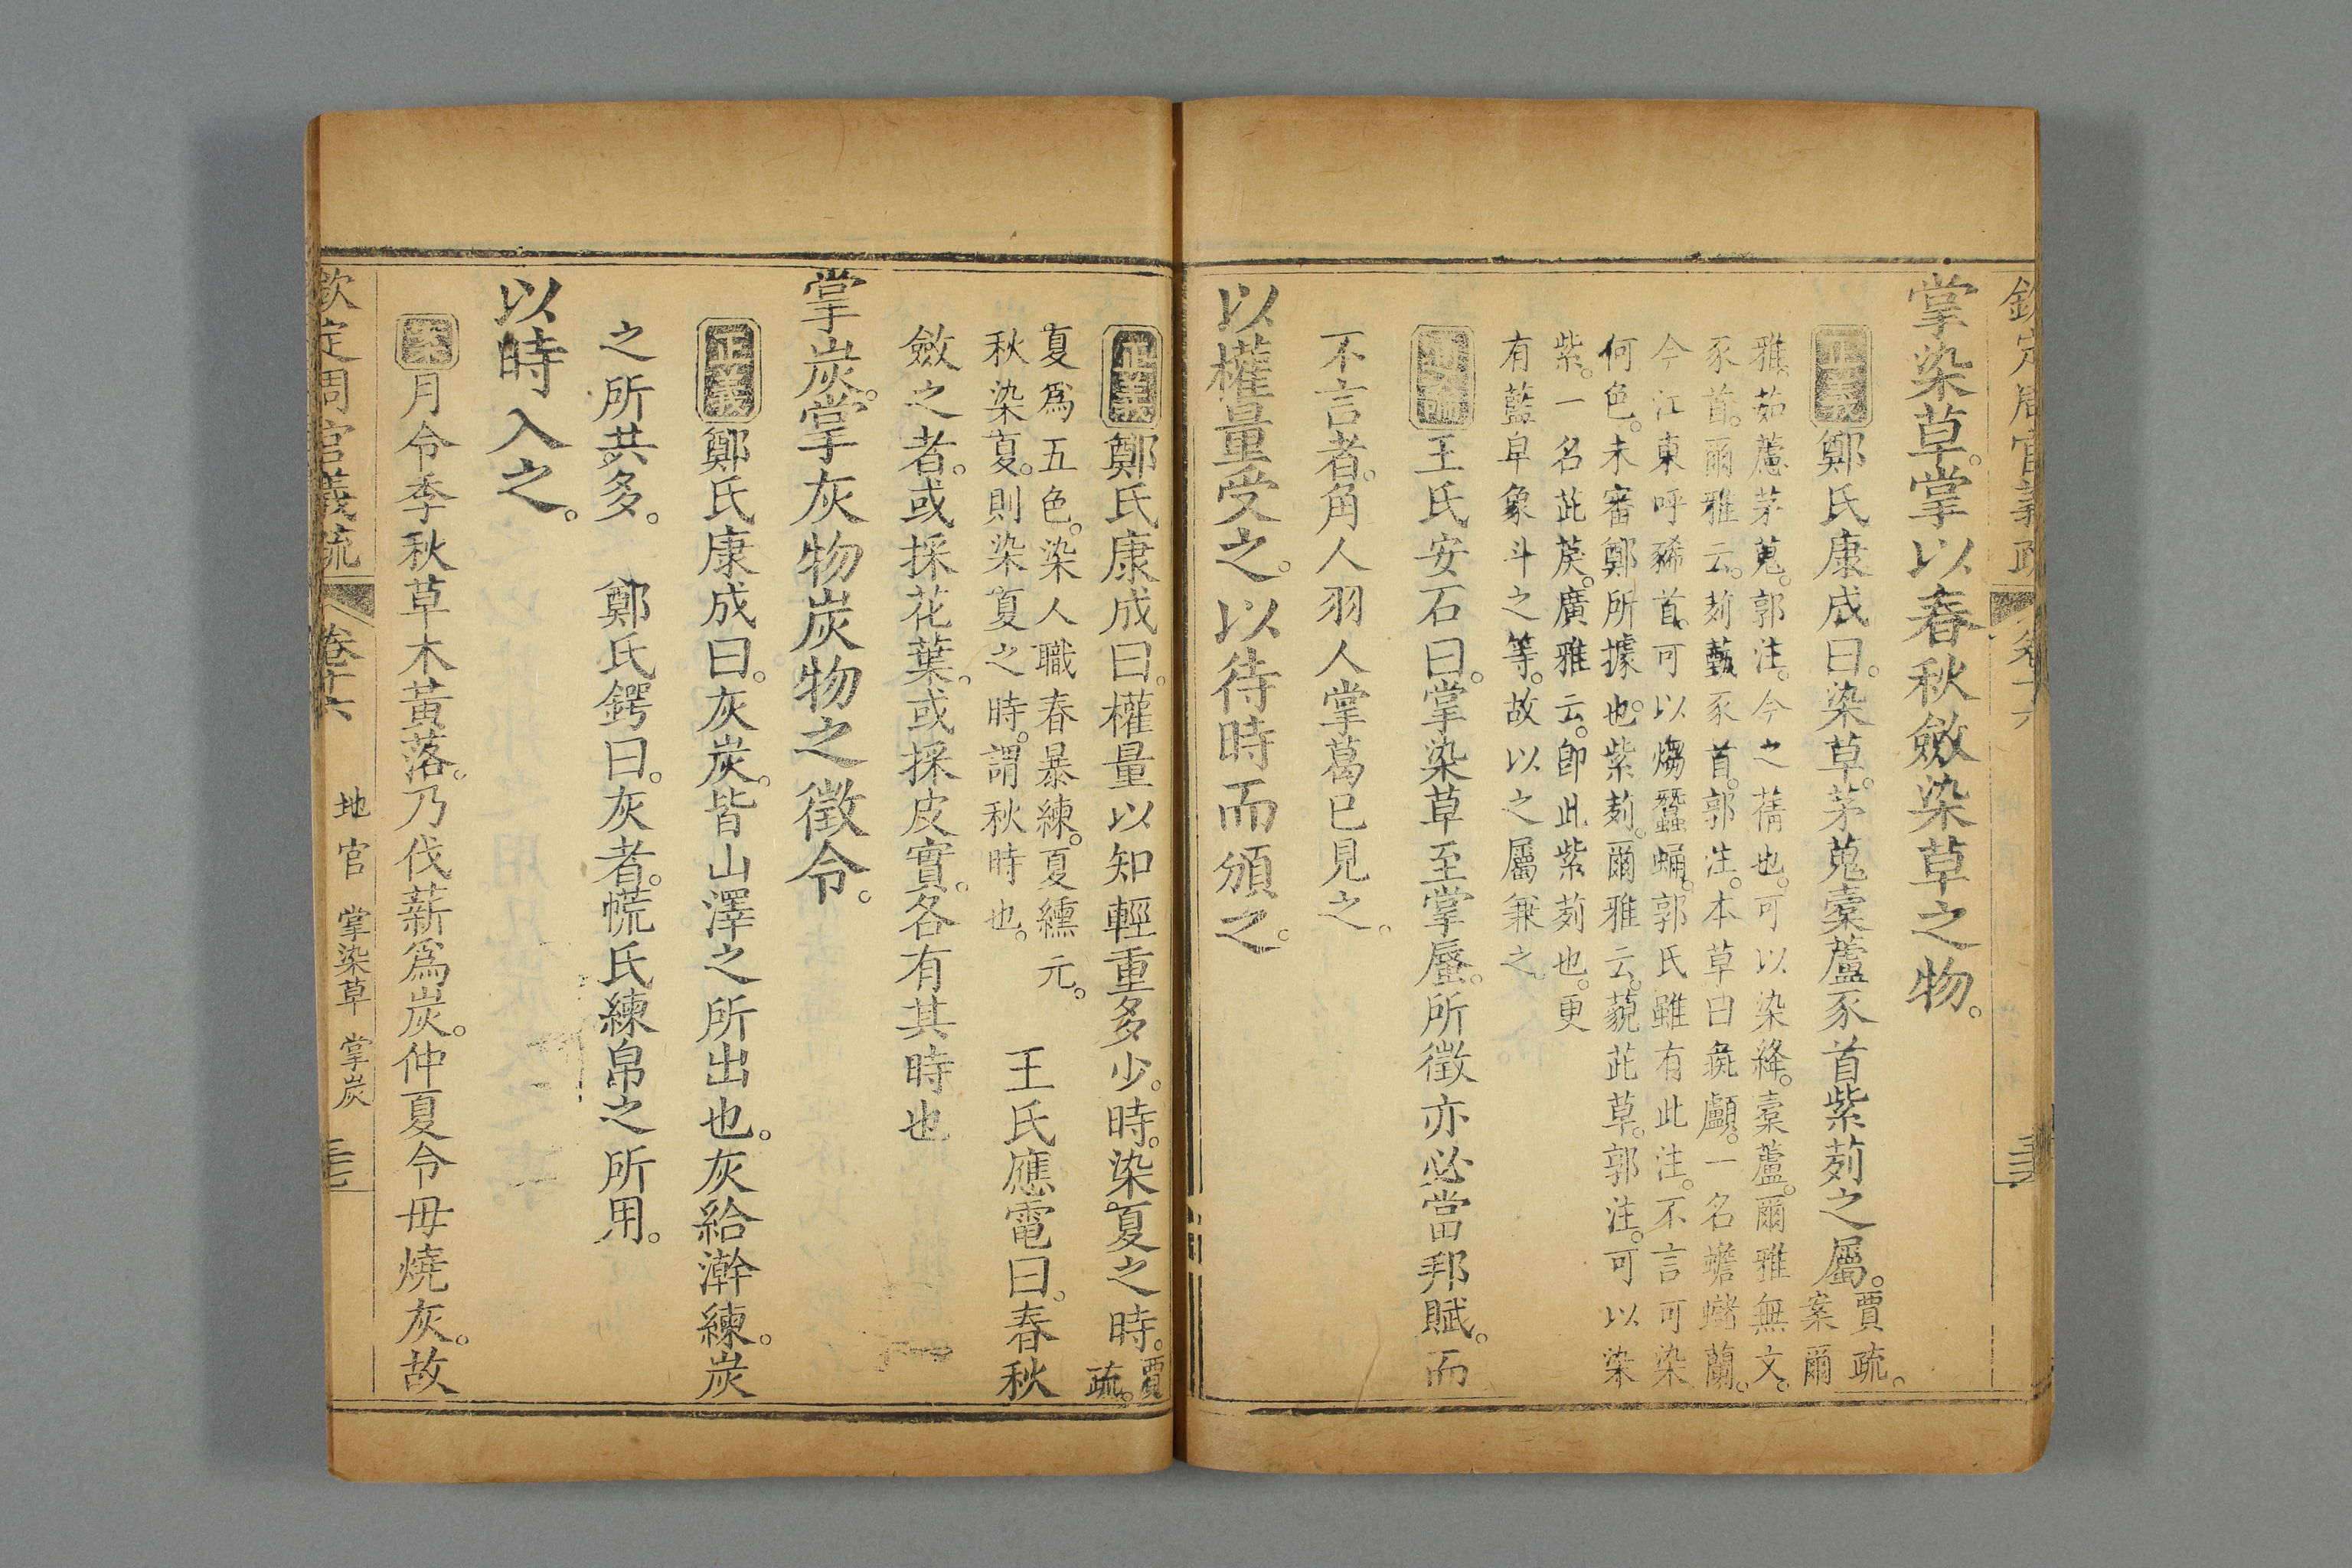 欽定周官義疏 卷十六
掌染草。掌以春秋斂染草之物。
正義鄭氏康成曰。染草。茅蒐橐蘆豕首紫茢之屬。賈疏。案爾
雅。茹藘茅蒐。郭注。今之蒨也。可以染絳。橐蘆。爾雅無文。
豕首。爾雅云。茢薽豕首。郭注。本草曰彘顱。一名蟾蠩蘭。
今江東呼豨首。可以煼蠶蛹。郭氏雖有此注。不言可染
何色。未審鄭所據也。紫茢。爾雅云。藐茈草。郭注。可以染
紫。一名茈䓞。廣雅云。卽此紫茢也。更
有藍皁象斗之等。故以之屬兼之。
通論王氏安石曰。掌染草至掌蜃。所徵亦必當邦賦。而
不言者。角人羽人掌葛已見之。
以權量受之。以待時而頒之。
正義鄭氏康成曰。權量以知輕重多少。時。染夏之時。賈疏。
夏爲五色。染人職春暴練。夏纁元。
秋染夏。則染夏之時。謂秋時也。 王氏應電曰。春秋
斂之者。或採花葉。或採皮實。各有其時也
掌炭。掌灰物炭物之徵令。
正義鄭氏康成曰。灰炭。皆山澤之所出也。灰給澣練。炭
之所共多。 鄭氏鍔曰。灰者。㡛氏練帛之所用。
以時入之。
案月令季秋草木黃落。乃伐薪爲炭。仲夏令毋燒灰。故
欽定周官義疏 卷十六 地官 掌染草 掌炭 三七